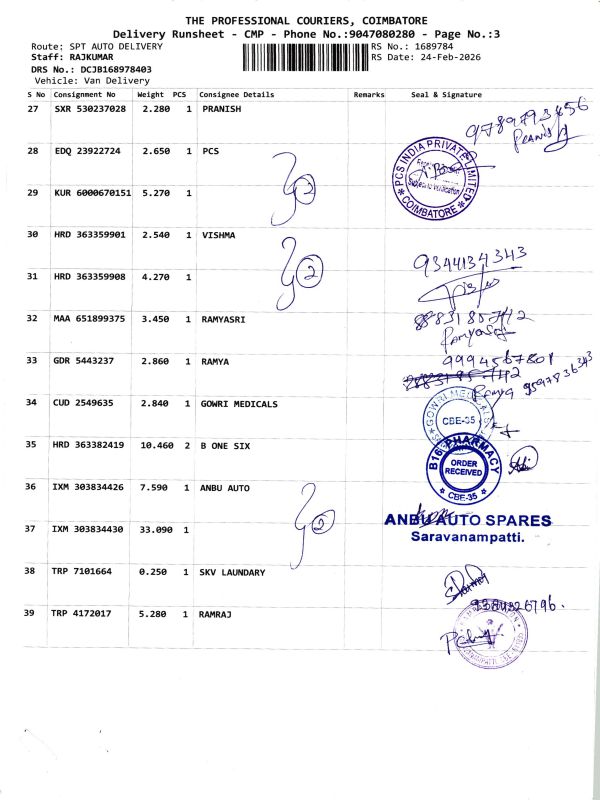 THE PROFESSIONAL COURIERS, COIMBATORE
Delivery Runsheet - CMP - Phone No.:9047080280 - Page No.:3
Route: SPT AUTO DELIVERY RS No.: 1689784
Staff: RAJKUMAR RS Date: 24-Feb-2026
DRS No.: DCJB168978403
Vehicle: Van Delivery
S No Consignment No Weight PCS Consignee Details Remarks Seal & Signature
27 SXR 530237028 2.280 1 PRANISH
9789793456
28 EDQ 23922724 2.650 1 PCS
PCS INDIA PRIVATE LIMITED
COIMBATORE
29 KUR 6000670151 5.270 1
2
30 HRD 363359901 2.540 1 VISHMA
9344134343
31 HRD 363359908 4.270 1
2
32 MAA 651899375 3.450 1 RAMYASRI
Ramyasri
33 GDR 5443237 2.860 1 RAMYA
9994567801
Ramya 9597836343
34 CUD 2549635 2.840 1 GOWRI MEDICALS
GOWRI MEDICALS
CBE-35
35 HRD 363382419 10.460 2 B ONE SIX
B16 PHARMACY
ORDER
RECEIVED
CBE-35
36 IXM 303834426 7.590 1 ANBU AUTO
2
ANBU AUTO SPARES
Saravanampatti.
37 IXM 303834430 33.090 1
38 TRP 7101664 0.250 1 SKV LAUNDARY
9384326796.
39 TRP 4172017 5.280 1 RAMRAJ